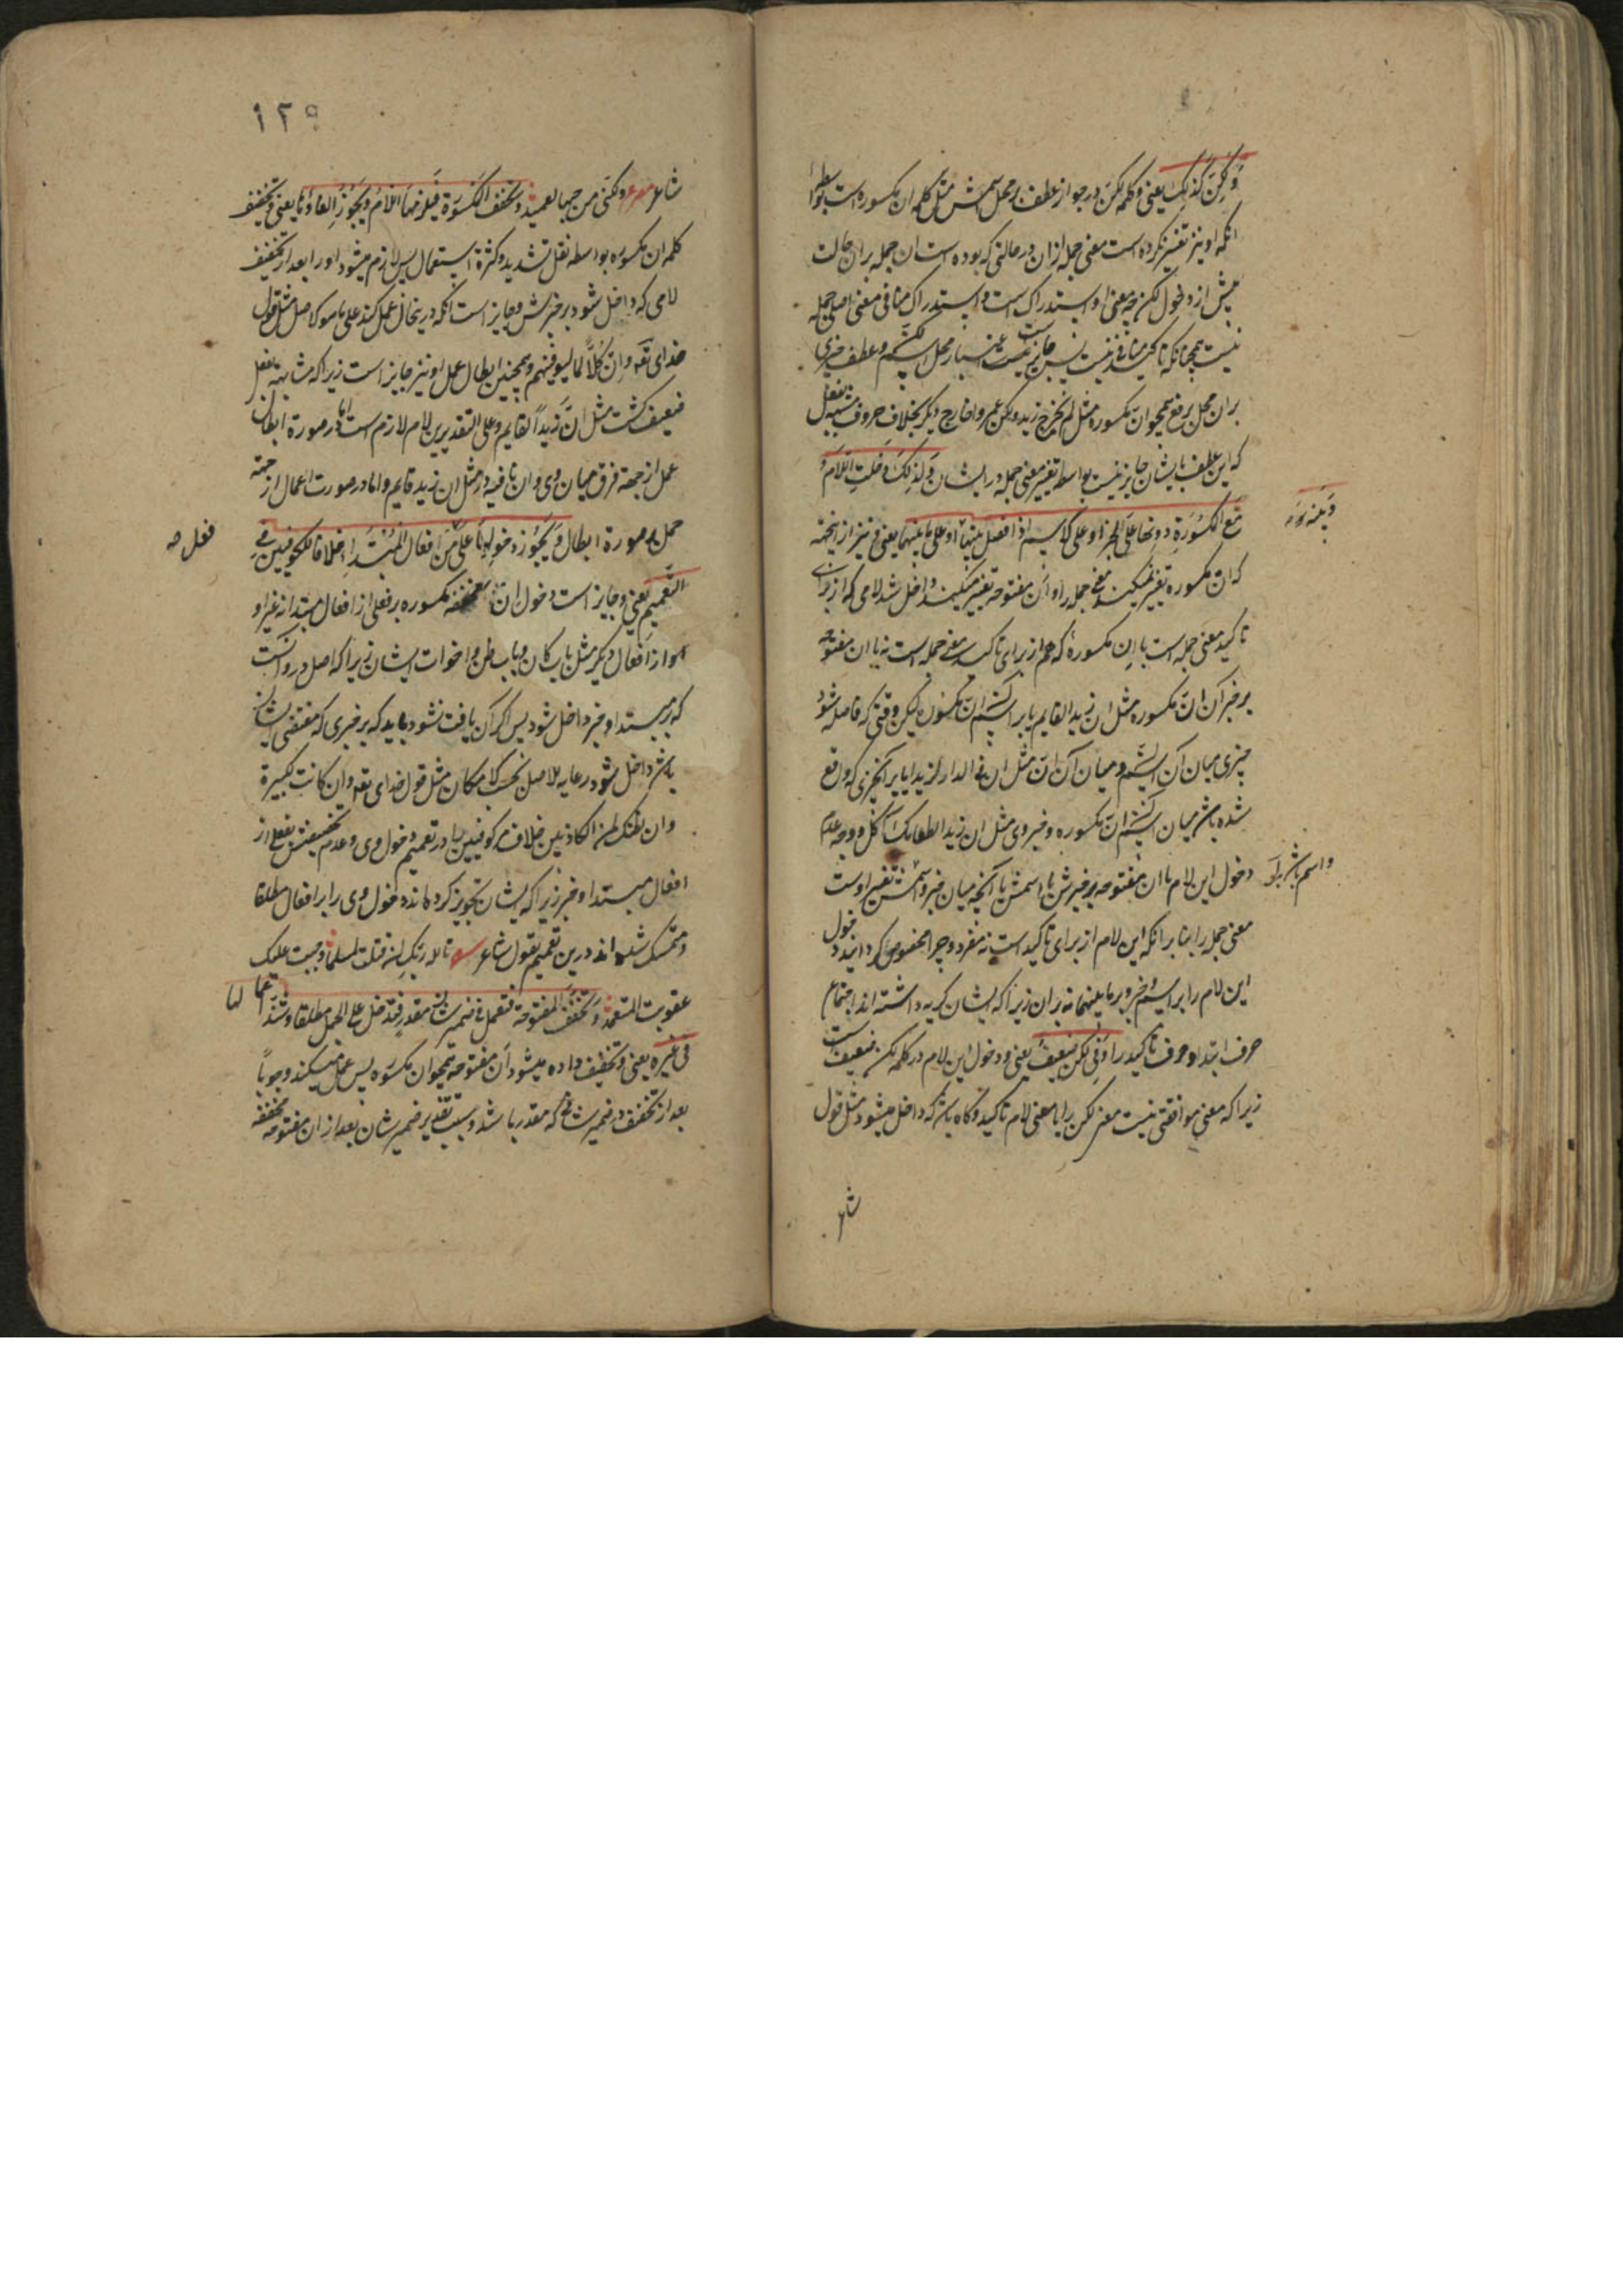 وَلکِنَّ کَذٰلِکَ یعنی و کلمه لکنّ در جواز عطف بر محل اسمش مثل کلمه انّ مکسوره است بواسطه
انکه او نیز تغییر نکرده است معنی جمله از ان در حالتی که بوده است ان جمله بران حالت
پیش از دخول لکن چه معنی او استدراک است و استدراک منافی معنی اصلی جمله
نیست همچنانکه تاکید منافی نیست پس جایز است اعتبار محل اسم لکنّ و عطف چیزی
بران محل برفع همچو انّ مکسوره مثل لم یخرج زید ولکن عمروا خارج و بکر بخلاف حروف مشبه بفعل
که این عطف بایشان جایز نیست بواسطه تغییر معنی جمله در ایشان وَلِذٰلِکَ دَخَلَتِ اللّامُ
مَعَ المَکسُورَةِ دُونَها عَلَی الخَبَرِ او علی الاسم اذا فصل بینه و بینها او علی ما بینهما یعنی و نیز از اینجهة
که انّ مکسوره تغییر نمیکند معنی جمله را و انّ مفتوحه تغییر میکند داخل شد لامی که از برای
تاکید معنی جمله است با انّ مکسورهٔ که هم از برای تاکید معنی جمله است نه با ان مفتوحه
بر خبر آن انّ مکسوره مثل ان زیدا لقایم یا بر اسم انّ مکسوره لیکن وقتی که فاصله شود
چیزی میان آن اسم و میان آن انّ مثل ان فی الدار لزیدا یا بر انچیزی که واقع
شده باشد میان اسم انّ مکسوره و خبر وی مثل ان زیدا لطعامک آکل و وجه عدم
دخول این لام با ان مفتوحه بر خبرش یا اسمش یا آنچه میان خبر و اسمش تغییر اوست
معنی جمله را بنا بر انکه این لام از برای تاکید است نه مفرد و چرا مخصوص کردانیدند دخول
این لام را بر اسم و خبر و بر ما بینهما نه بر ان زیرا که ایشان کریه داشته اند اجتماع
حرف ابتدا و حرف تاکید را وَفی لکنّ ضَعیفٌ یعنی و دخول این لام در کلمه لکنّ ضعیف است
زیرا که معنی موافقتی نیست معنی لکن را با معنی لام تاکید و کاه باشد که داخل میشود مثل قول
شاعر
واسم باشد یا بر
۱۲۹
شاعر مصرع ولکنّنی من حبها لعمید وَتُخَفَّفُ المَکسُورَةُ فَیَلزَمُهَا اللّامُ وَیَجُوزُ اِلغاؤُها یعنی و تخفیف
کلمه ان مکسوره بواسطه نقل تشدید و کثرة استعمال پس لازم میشود او را بعد از تخفیف
لامی که داخل شود بر خبرش و جایز است انکه درینحال عمل کند علی ما هو الاصل مثل قول
خدای تعه وانّ کُلاًّ لما لیوفینهم و همچنین ابطال عمل او نیز جایز است زیرا که مشابهة بفعل
ضعیف کشت مثل انّ زیداً لقایم و علی التقدیرین لام لازم است اما در صورة ابطال
عمل از جهة فرق میان وی و ان نافیه در مثل ان زید قایم و اما در صورت اعمال از جهة
حمل بر صورة ابطال وَیَجُوزُ دُخُولُها عَلی فِعلٍ مِن اَفعالِ المُبتَدَإِ خلافا للکوفیین فِی
التَّعمِیمِ یعنی و جایز است دخول ان مخففه مکسوره بر فعلی از افعال مبتدا نه غیر او
او از افعال دیکر مثل باب کان و باب ظن و اخوات ایشان زیرا که اصل در و آنست
که بر مبتدا و خبر داخل شود پس اکر آن یافت نشود باید که بر خبری که مقتضی ایشان
باشد داخل شود رعایه للاصل بحسب الامکان مثل قول خدای تعه وان کانت لکبیرة
وان نظنک لمن الکاذبین خلاف کوفیین را در تعمیم دخول وی و عدم تخصیصش بفعلی از
افعال مبتدا و خبر زیرا که ایشان تجویز کرده اند دخول وی را بر افعال مطلقا
و متمسک شده اند درین تعمیم بقول شاعر تالله ربک ان قتلت لمسلما وجبت علیک
عقوبت المتعمد وَتُخَفَّفُ المَفتُوحَةُ فتعمل فی ضمیر شان مقدر فتدخل علی الجمل مطلقا وشذّ اعمالها
فی غَیرِه یعنی و تخفیف داده میشود آن مفتوحه همچو ان مکسوره پس عمل میکند وجوباً
بعد از تخفیف در ضمیر شانی که مقدر باشد و سبب تقدیر ضمیر شان بعد از ان مفتوحه مخففه
فعل صح